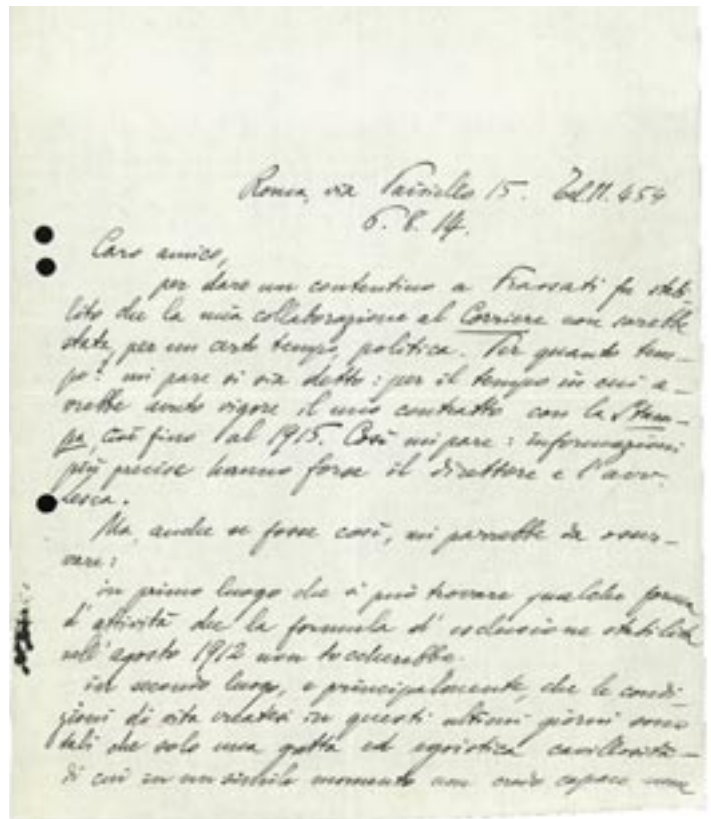 Roma, via Paisiello 15. Tel. 11.454
6.8.14.
Caro amico,
per dare un contentino a Frassati fu stabi-
lito che la mia collaborazione al Corriere non sarebbe
stata, per un certo tempo, politica. Per quando tem-
po? mi pare si sia detto: per il tempo in cui a-
vrebbe avuto vigore il mio contratto con la Stam-
pa, cioè fino al 1915. Così mi pare: informazioni
più precise hanno forse il direttore e l'avv.
Ma, anche se fosse così, mi parrebbe da osser-
vare:
in primo luogo che si può trovare qualche forma
d'attività che la formula d'esclusione stabilita
nell'agosto 1912 non toccherebbe.
in secondo luogo, e principalmente, che le condi-
zioni di vita createsi in questi ultimi giorni sono
tali che solo una gretta ed egoistica cavillosità
di cui in un simile momento non credo capace